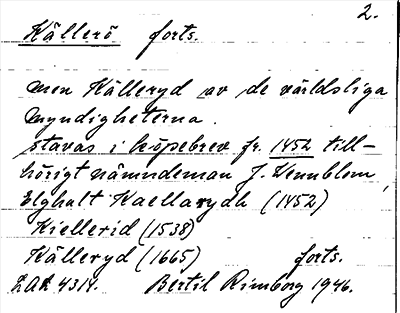 2.
Källerö forts.
men Källeryd av de världsliga
myndigheterna.
stavas i köpebrev fr. 1452 till-
hörigt nämndeman J. Vennblom,
Elghult Kaellarydh (1452)
Kiellerid (1538)
Källeryd (1665) forts.
LAL 4314. Bertil Rimborg 1946.